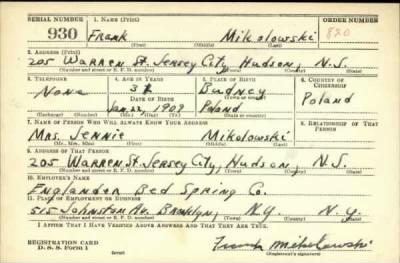 SERIAL NUMBER 1. NAME (Print) ORDER NUMBER
930 Frank Mikolowski 820
(First) (Middle) (Last)
2. ADDRESS (Print)
205 Warren St. Jersey City, Hudson, N.J.
(Number and street or R. F. D. number) (Town) (County) (State)
3. TELEPHONE 4. AGE IN YEARS 5. PLACE OF BIRTH 6. COUNTRY OF CITIZENSHIP
None 32 Budney
DATE OF BIRTH (Town or county) Poland
Jan. 22, 1908 Poland
(Exchange) (Number) (Mo.) (Day) (Yr.) (State or country)
7. NAME OF PERSON WHO WILL ALWAYS KNOW YOUR ADDRESS 8. RELATIONSHIP OF THAT PERSON
Mrs. Jennie Mikolowski
(Mr., Mrs., Miss) (First) (Middle) (Last)
9. ADDRESS OF THAT PERSON
205 Warren St. Jersey City, Hudson, N.J.
(Number and street or R. F. D. number) (Town) (County) (State)
10. EMPLOYER'S NAME
Englander Bed Spring Co.
11. PLACE OF EMPLOYMENT OR BUSINESS
515 Johnston Av. Brooklyn, N.Y. N.Y.
(Number and street or R. F. D. number) (Town) (County) (State)
I AFFIRM THAT I HAVE VERIFIED ABOVE ANSWERS AND THAT THEY ARE TRUE.
REGISTRATION CARD
D. S. S. Form 1 (over) Frank Mikolowski
(Registrant's signature)